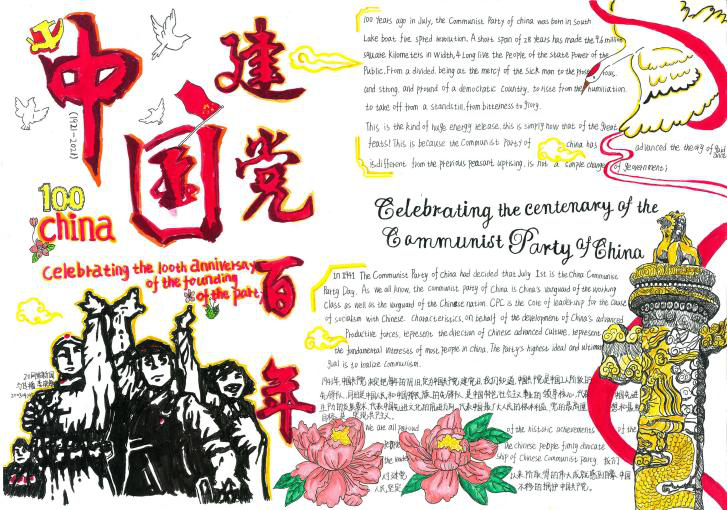 中国
建党百年
(1921-2021)
100
china
Celebrating the 100th anniversary
of the founding
of the party
100 Years ago in July, the Communist Party of china was born in South
Lake boat. Fire spred revolution. A short span of 28 Years has made the 9.6 million
square kilometers in width, & Long live the People of the state Power of the
Public. From a divided, being at the mercy of the sick man to the
and strong, and pround of a democratic Country, to risse from the humiliation.
to take off from a standstill, from bitterness to glory.
This is the kind of huge energy release, this is simply now that of the great
feats! This is because the Communist Party of china has advanced the theory of
it, different from the previous peasant uprising, is not a simple change of government;
Celebrating the centenary of the
Communist Party of China
In 1941 The Communist Party of china had decided that July 1st is the China Communist
Party Day. As we all know, the communist party of China is China's vanguard of the working
Class as well as the vanguard of the Chinese nation. CPC is the Core of leadership for the Cause
of socialism with Chinese Characteristics, on behalf of the development of China's advanced
Productive forces, represent the direction of Chinese advanced Culture, represent
the fundamental interests of most people in china. The Party's highest ideal and ultimate
goal is to realize Communism.
We are all pround of the historic achievements of the
the Chinese people firmly advocate
the leader ship of Chinese Communist party. 我们
对建党 以来所取得的伟大成就感到自豪,中国
人民坚定 不移的拥护中国共产党。